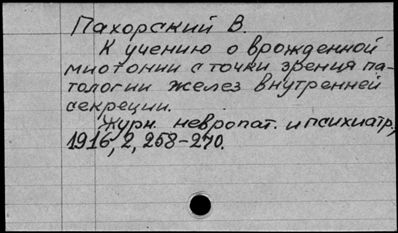 Пахорский В.
К учению о врожденной
миотонии с точки зрения па-
тологии желез внутренней
секреции.
Журн. невропат. и психиатр.,
1916, 2, 258-270.